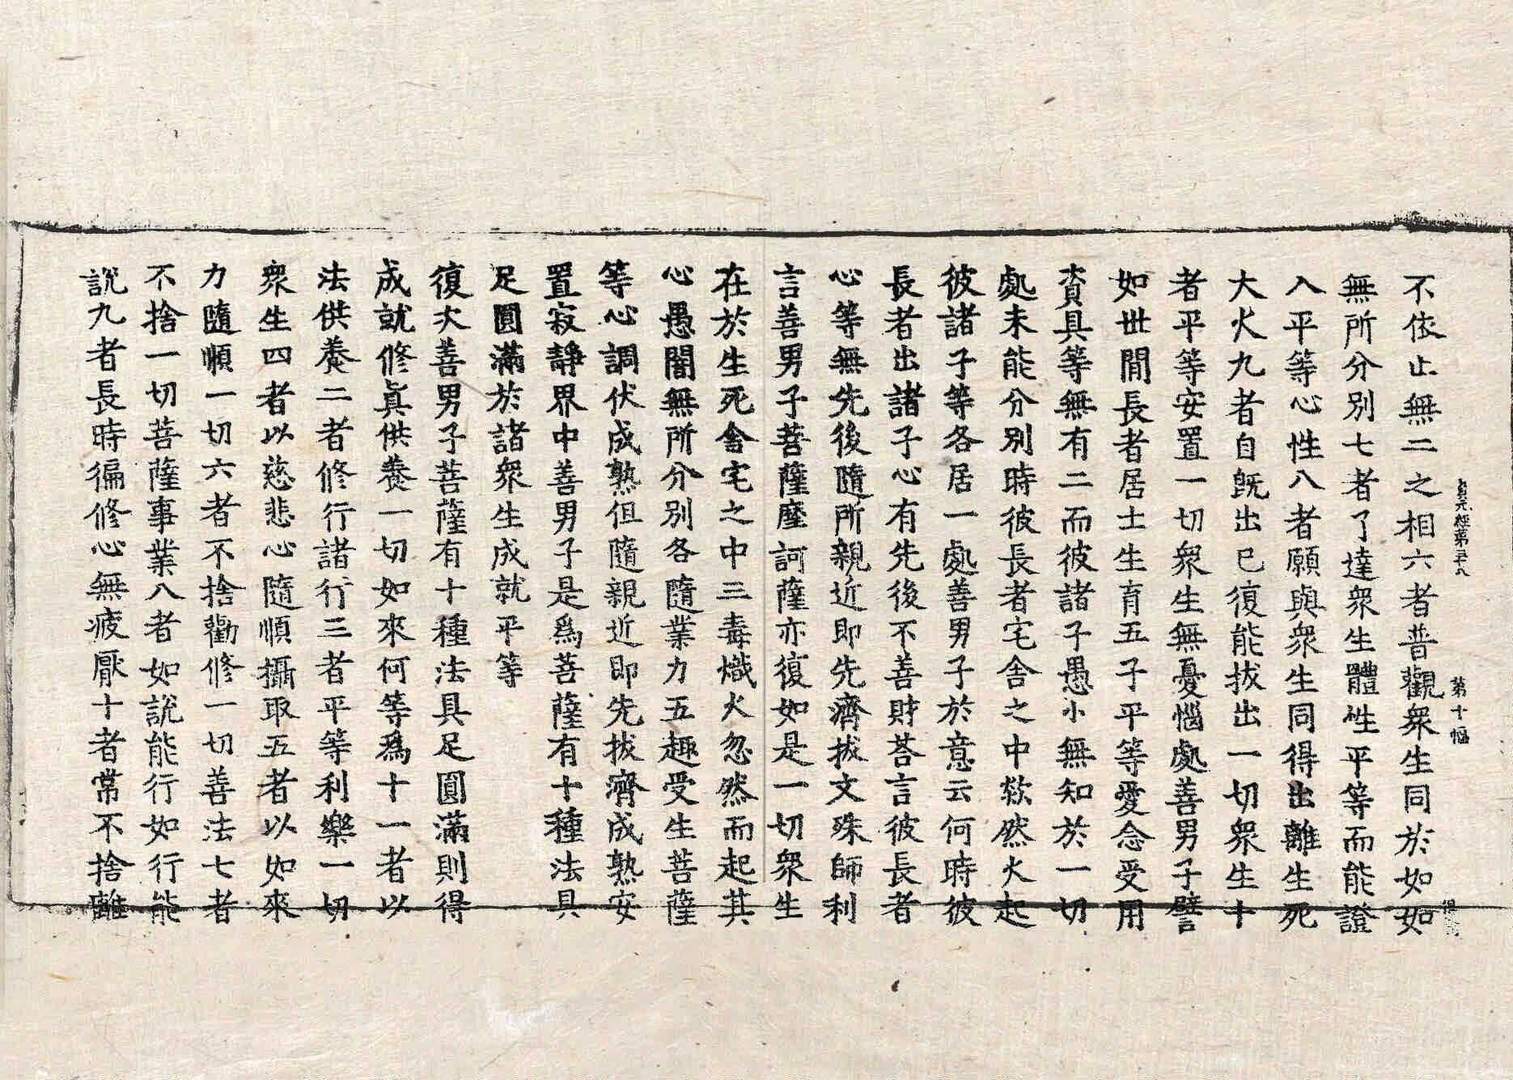 貞元經第五八 第十幅
不依止無二之相六者普觀衆生同於如如
無所分別七者了達衆生體性平等而能證
入平等心性八者願與衆生同得出離生死
大火九者自旣出已復能拔出一切衆生十
者平等安置一切衆生無憂惱處善男子譬
如世間長者居士生育五子平等愛念受用
資具等無有二而彼諸子愚小無知於一切
處未能分別時彼長者宅舍之中欻然火起
彼諸子等各居一處善男子於意云何時彼
長者出諸子心有先後不善財荅言彼長者
心等無先後隨所親近即先濟拔文殊師利
言善男子菩薩摩訶薩亦復如是一切衆生
在於生死舍宅之中三毒熾火忽然而起其
心愚闇無所分別各隨業力五趣受生菩薩
等心調伏成熟但隨親近即先拔濟成熟安
置寂靜界中善男子是爲菩薩有十種法具
足圓滿於諸衆生成就平等
復次善男子菩薩有十種法具足圓滿則得
成就修眞供養一切如來何等爲十一者以
法供養二者修行諸行三者平等利樂一切
衆生四者以慈悲心隨順攝取五者以如來
力隨順一切六者不捨勸修一切善法七者
不捨一切菩薩事業八者如說能行如行能
說九者長時徧修心無疲厭十者常不捨離